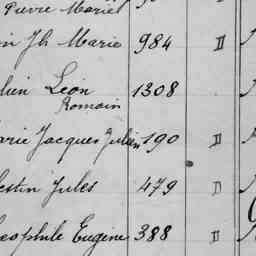 Pierre Marcel
in Jh Marie 984 D
lien Léon 1308
Romain
arie Jacques Julien 190 D
estin Jules 479 D
éophile Eugène 388 D